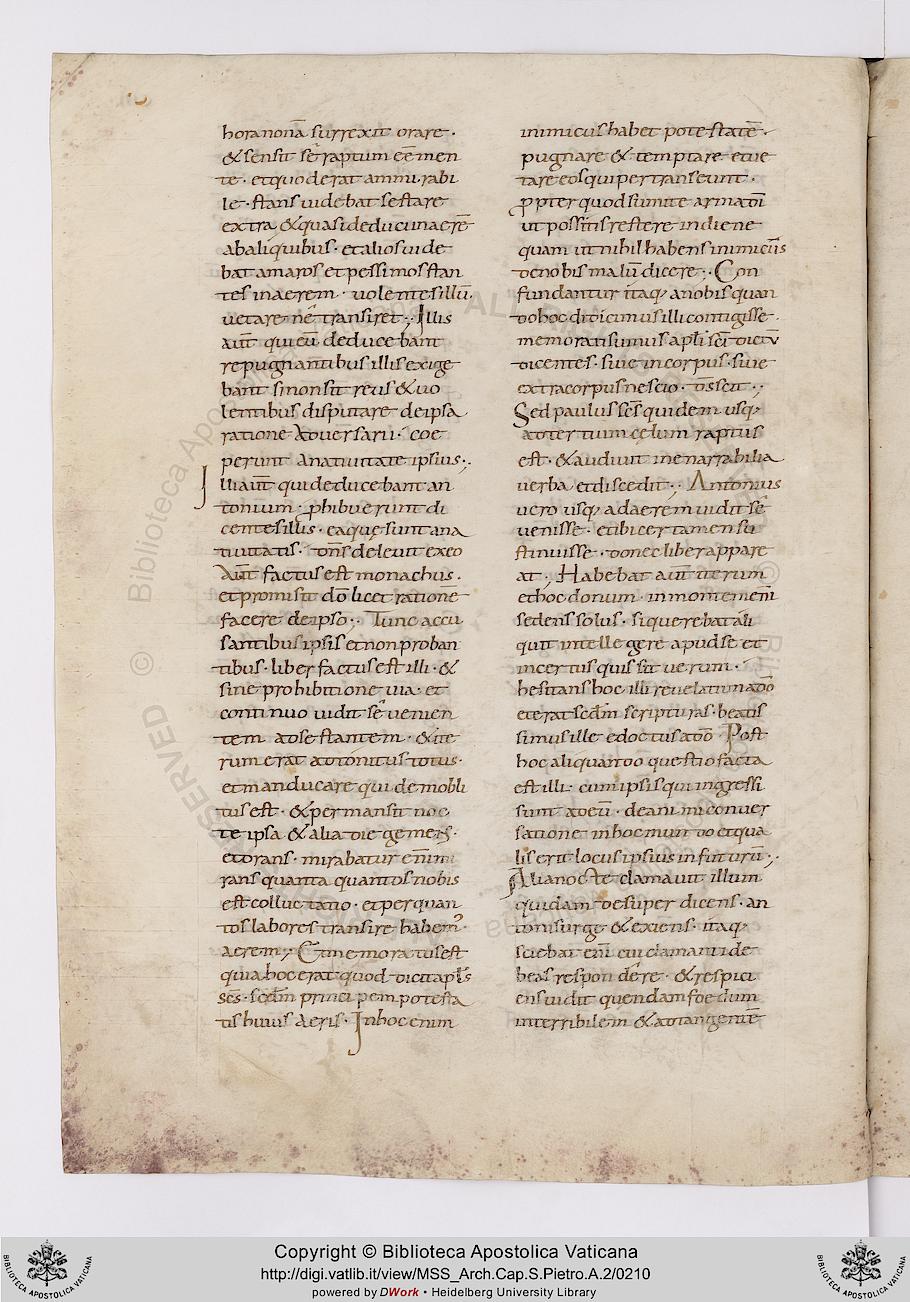 hora nonā surrexit orare ·
& sensit sē raptum eē men
te · et quod erat ammirabi
le · stans videbat se stare
extra & quasi deduci in aerē
ab aliquibus · et alios vide
bat amaros et pessimos stan
tes in aerem · volentes illū ·
vetare nē transiret ·, Illis
aūt qui eū deducebant
repugnantibus illis exige
bant si non sit reus & vo
lentibus disputare de ipsa
ratione adversarii · coe
perunt a nativitate ipsius ·,
Illi aūt qui deducebant an
tonium · phibuerunt di
centes illis · ea quę sunt a na
tivitatis · dn̄s delevit ex eo
Aūt factus est monachus ·
et promisit dō licet rationē
facere de ipso ·, Tunc accu
santibus ipsis et non proban
tibus · liber factus est illi · &
sine prohibitione via · et
continuo vidit sē venien
tem ad se stantem · & ite
rum erat adtonitus totus ·
et manducare quidem obli
tus est · & permansit noc
te ipsa & alia die gemens ·
et orans · mirabatur enim
rans quanta quantos nobis
est colluctatio · et per quan
tos labores transire habem̄
aerem ·, Et memoratus est
quia hoc erat quod dicit apl̄s
ses · scdm principem potesta
tis huius aeris · In hoc enim
inimicus habet potestatē ·
pugnare & temptare et ve
tare eos qui pertranseunt ·
ppter quod sumite armadī
ut possitis restere in die ne
quam ut nihil habens inimicus
de nobis malū dicere ·, Con
fundantur itaq; a nobis quan
do hoc dicimus illi contigisse ·
memorati sumus apli sci dictū
dicentes · sive in corpus · sive
extra corpus nescio · dī scit ·,
Sed paulus ses quidem usq;
ad tertium celum raptus
est · & audivit inenarrabilia
verba et discedit ·, Antonius
vero usq; ad aerem vidit sē
venisse · et ibi certamen su
stinuisse · donec liber appare
at · Habebat aūt iterum
et hoc donum · in mom̄
sedens solus · si querebat ali
quit intellegere apud se et
incertus quis sit verum ·
hesitans hoc illi revelatum a dō
et erat scdm scripturas · beatis
simus ille edoctus a dō · Post
hoc aliquando questio facta
est illi · cum ipsis qui ingressi
sunt ad eū · de animi conver
satione in hoc mundo et qua
lis erit locus ipsius in futurū ·,
Alia nocte clamavit illum
quidam desuper dicens · an
toni surge & exiens · itaq;
sciebat enī cui clamanti de
beas respondēre · & respici
ens vidit quendam foedum
in terribilem & adtangentē
Copyright © Biblioteca Apostolica Vaticana
http://digi.vatlib.it/view/MSS_Arch.Cap.S.Pietro.A.2/0210
powered by DWork • Heidelberg University Library